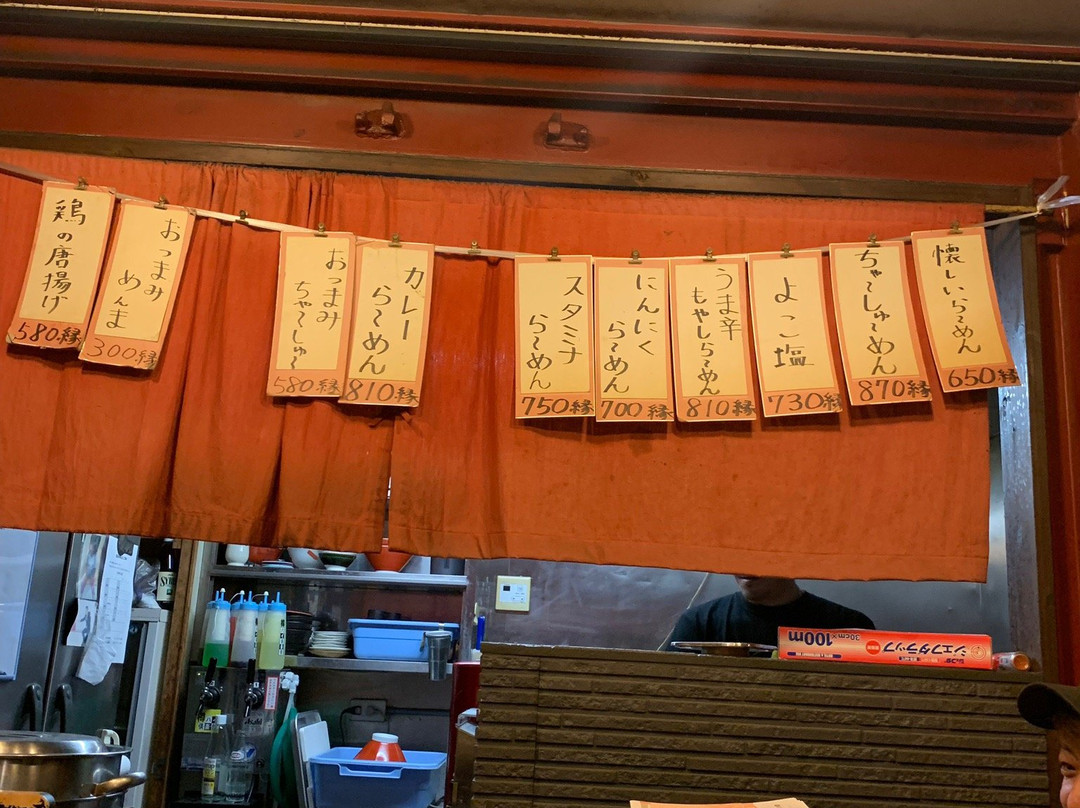 懐しいら〜めん
650縁
ちゃ〜しゅ〜めん
870縁
よこ塩
730縁
うま辛
もやしら〜めん
810縁
にんにく
ら〜めん
700縁
スタミナ
ら〜めん
750縁
カレー
ら〜めん
810縁
おつまみ
ちゃ〜しゅ〜
580縁
おつまみ
めんま
300縁
鶏の唐揚げ
580縁
シェフダラップ
30cm×100m
Asahi